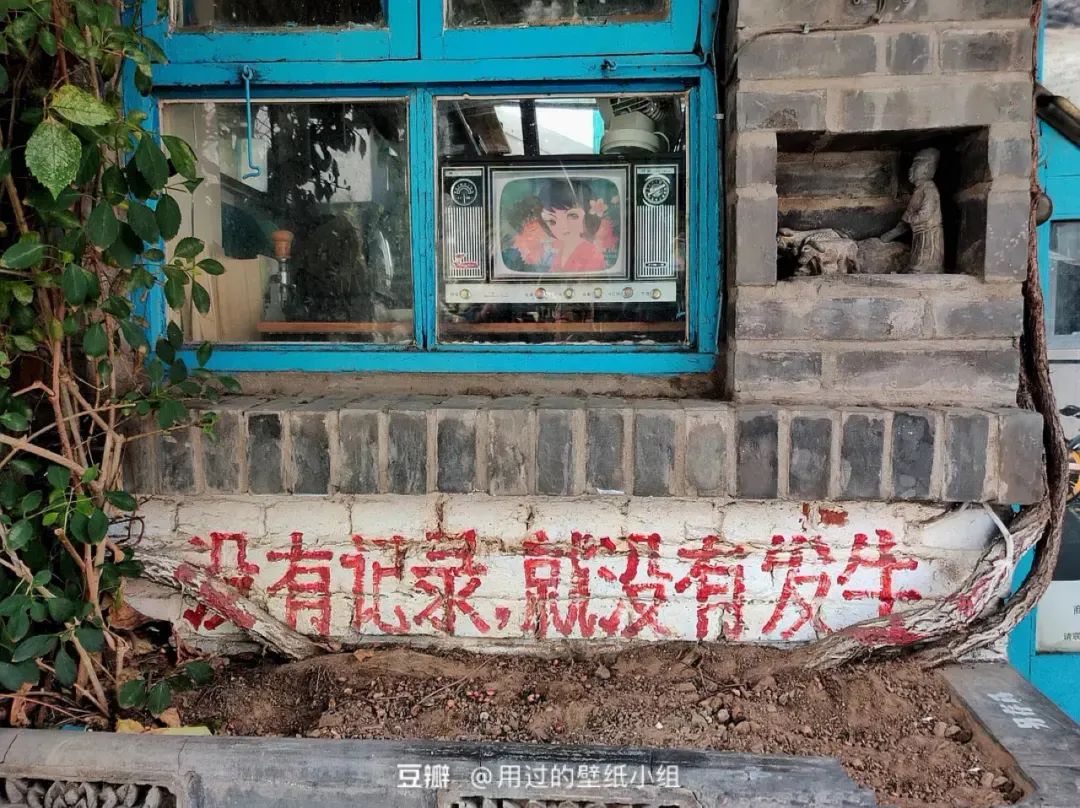 没有记录,就没有发生
豆瓣 @用过的壁纸小组